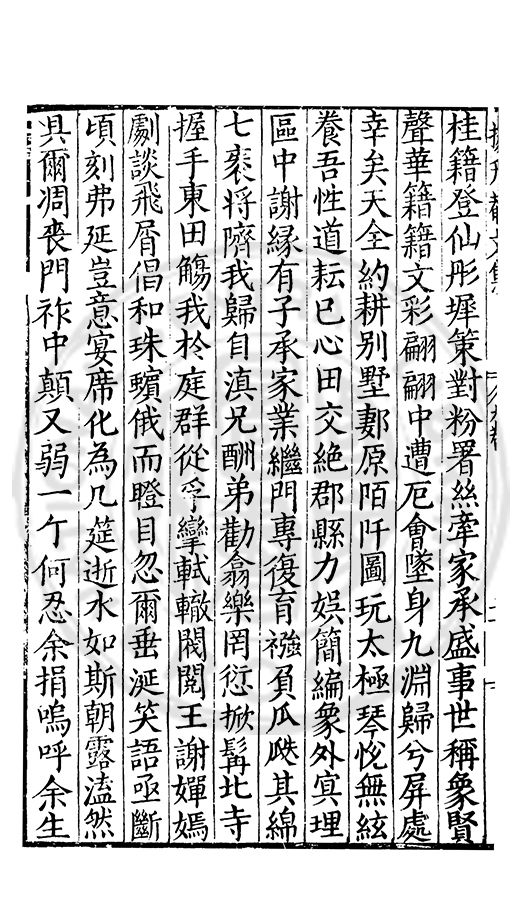 桂籍登仙彤墀策對粉署絲牽家承盛事世稱象賢
聲華籍籍文彩翩翩中遭厄會墜身九淵歸兮屏處
幸矣天全約耕别墅原陌阡圖玩太極琴悅無絃
養吾性道耘巳心田交絶郡縣力娛簡編象外㝠理
區中謝緣有子承家業繼門專復育襁負瓜瓞其綿
七袠將隮我歸自滇兄酬弟勸翕樂罔愆掀髯比寺
握手東田觴我於庭群從孚攣軾轍閥閱王謝嬋嫣
劇談飛屑倡和珠蠙俄而瞪目忽爾垂涎笑語亟斷
頃刻弗延豈意宴席化為几筵逝水如斯朝露溘然
具爾凋喪門祚中顛又弱一个何忍余捐嗚呼余生